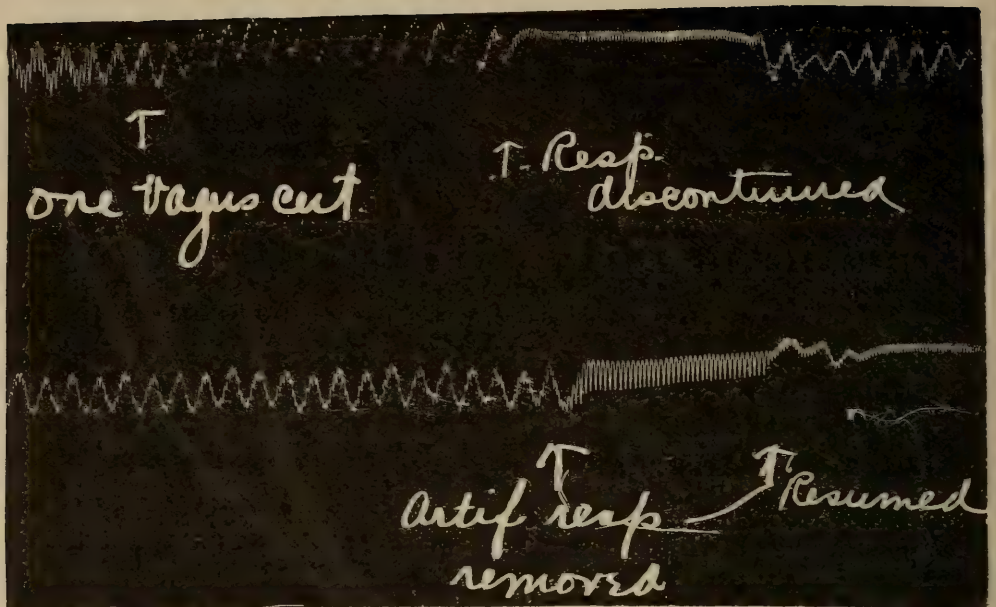 one vagus cut
Resp.
discontinued
Artif resp
Resumed
removed